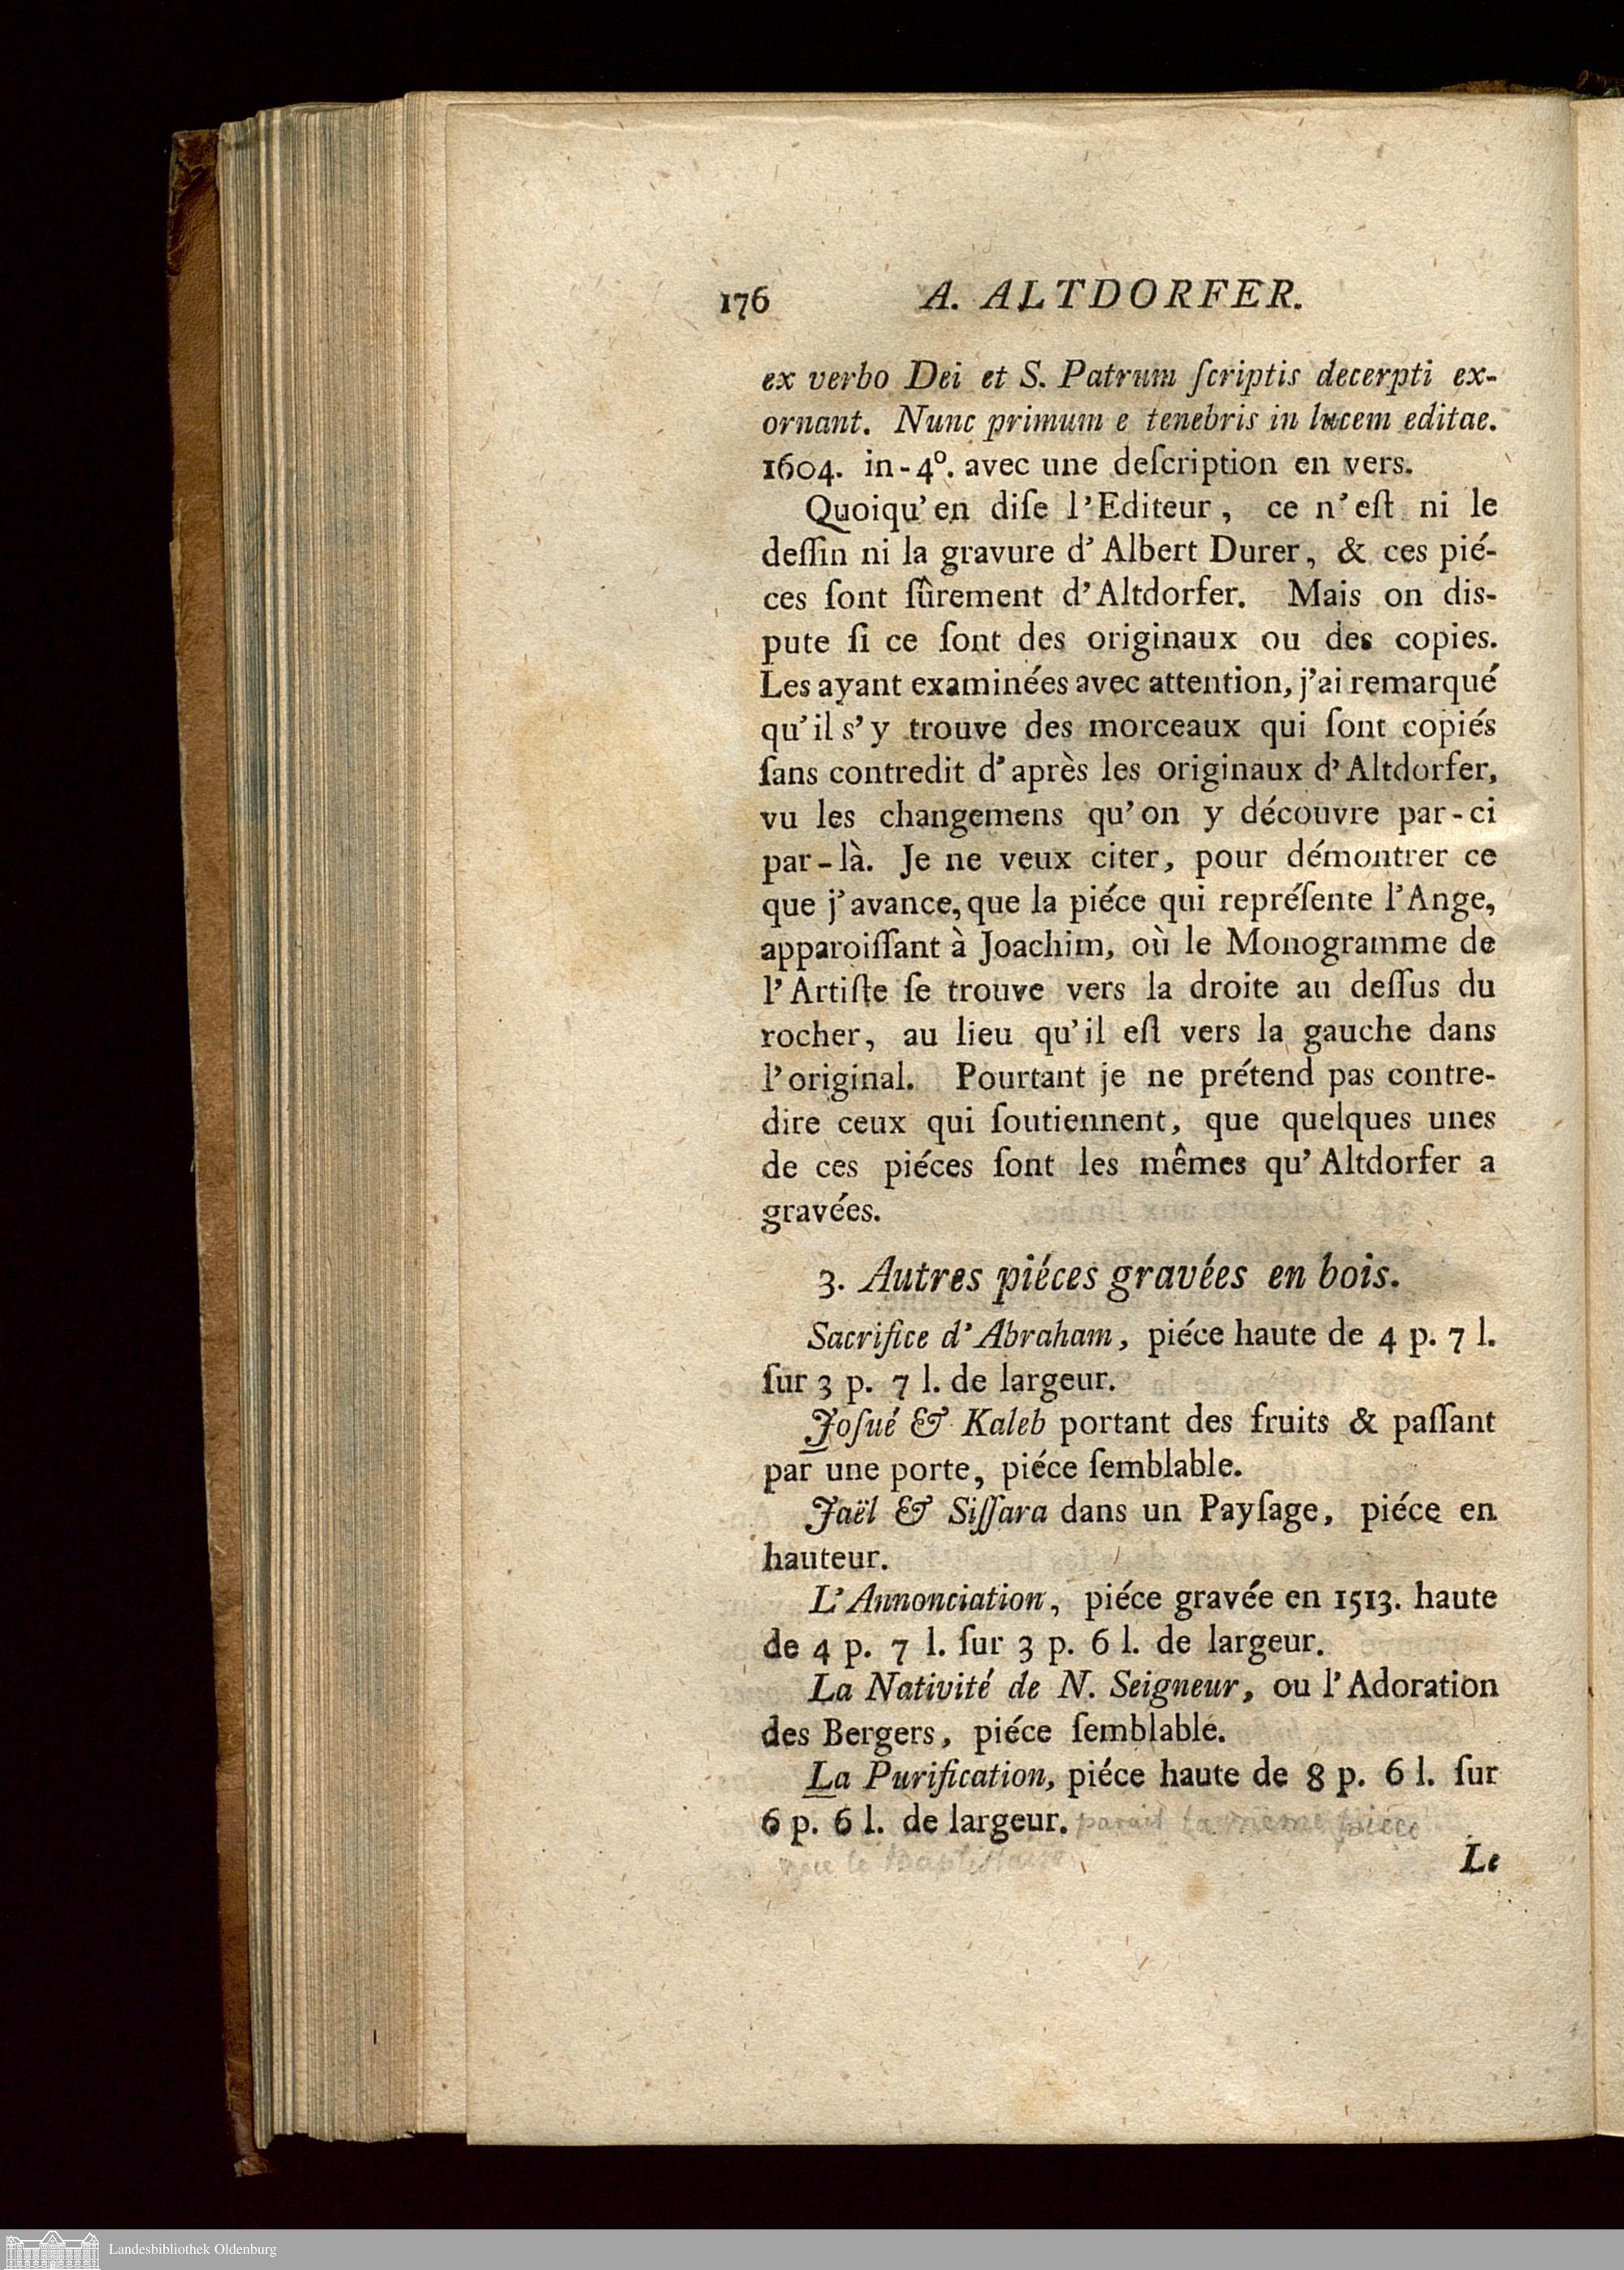 176 A. ALTDORFER.
ex verbo Dei et S. Patrum ſcriptis decerpti ex-
ornant. Nunc primum e tenebris in lucem editae.
1604. in-4º. avec une deſcription en vers.
Quoiqu'en diſe l'Editeur, ce n'eſt ni le
deſſin ni la gravure d'Albert Durer, & ces pié-
ces ſont ſûrement d'Altdorfer. Mais on dis-
pute ſi ce ſont des originaux ou des copies.
Les ayant examinées avec attention, j'ai remarqué
qu'il s'y trouve des morceaux qui ſont copiés
ſans contredit d'après les originaux d'Altdorfer,
vu les changemens qu'on y découvre par-ci
par-là. Je ne veux citer, pour démontrer ce
que j'avance, que la piéce qui repréſente l'Ange,
apparoiſſant à Joachim, où le Monogramme de
l'Artiſte ſe trouve vers la droite au deſſus du
rocher, au lieu qu'il eſt vers la gauche dans
l'original. Pourtant je ne prétend pas contre-
dire ceux qui ſoutiennent, que quelques unes
de ces piéces ſont les mêmes qu'Altdorfer a
gravées.
3. Autres piéces gravées en bois.
Sacrifice d'Abraham, piéce haute de 4 p. 7 l.
ſur 3 p. 7 l. de largeur.
Joſué & Kaleb portant des fruits & paſſant
par une porte, piéce ſemblable.
Jaël & Siſſara dans un Payſage, piéce en
hauteur.
L'Annonciation, piéce gravée en 1513. haute
de 4 p. 7 l. ſur 3 p. 6 l. de largeur.
La Nativité de N. Seigneur, ou l'Adoration
des Bergers, piéce ſemblable.
La Purification, piéce haute de 8 p. 6 l. ſur
6 p. 6 l. de largeur. parait la même piéce
que le
Le
Landesbibliothek Oldenburg